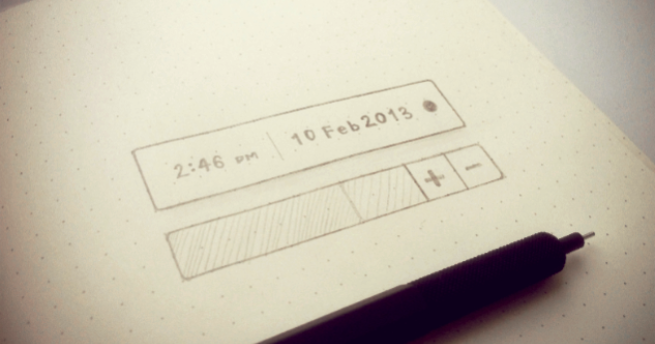 2:46 PM | 10 Feb 2013
+ -